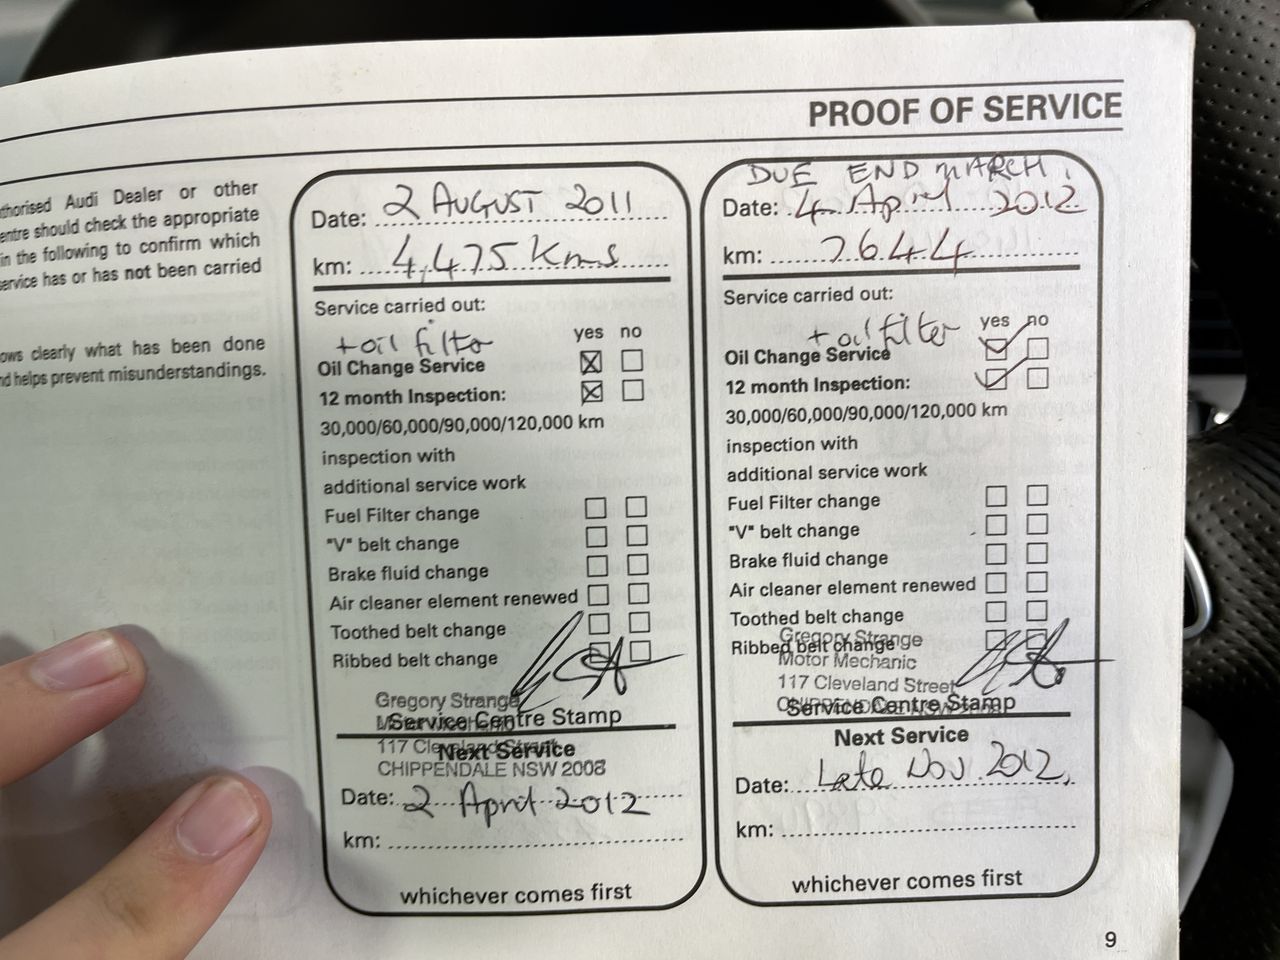 PROOF OF SERVICE
Audi Dealer or other
should check the appropriate
in the following to confirm which
has or has not been carried
clearly what has been done
helps prevent misunderstandings.
Date: 2 AUGUST 2011
km: 4,475 Kms
Service carried out:
+ oil filter yes no
Oil Change Service
12 month Inspection:
30,000/60,000/90,000/120,000 km
inspection with
additional service work
Fuel Filter change
"V" belt change
Brake fluid change
Air cleaner element renewed
Toothed belt change
Ribbed belt change
Gregory Strange
Service Centre Stamp
117 Cleveland Street
Next Service
CHIPPENDALE NSW 2008
Date: 2 April 2012
km:
whichever comes first
DUE END MARCH.
Date: 4 April 2012
km: 7644
Service carried out:
+ oil filter yes no
Oil Change Service
12 month Inspection:
30,000/60,000/90,000/120,000 km
inspection with
additional service work
Fuel Filter change
"V" belt change
Brake fluid change
Air cleaner element renewed
Toothed belt change
Gregory Strange
Ribbed belt change
Motor Mechanic
117 Cleveland Street
CHIPPENDALE NSW
Service Centre Stamp
Next Service
Date: Late Nov 2012.
km:
whichever comes first
9